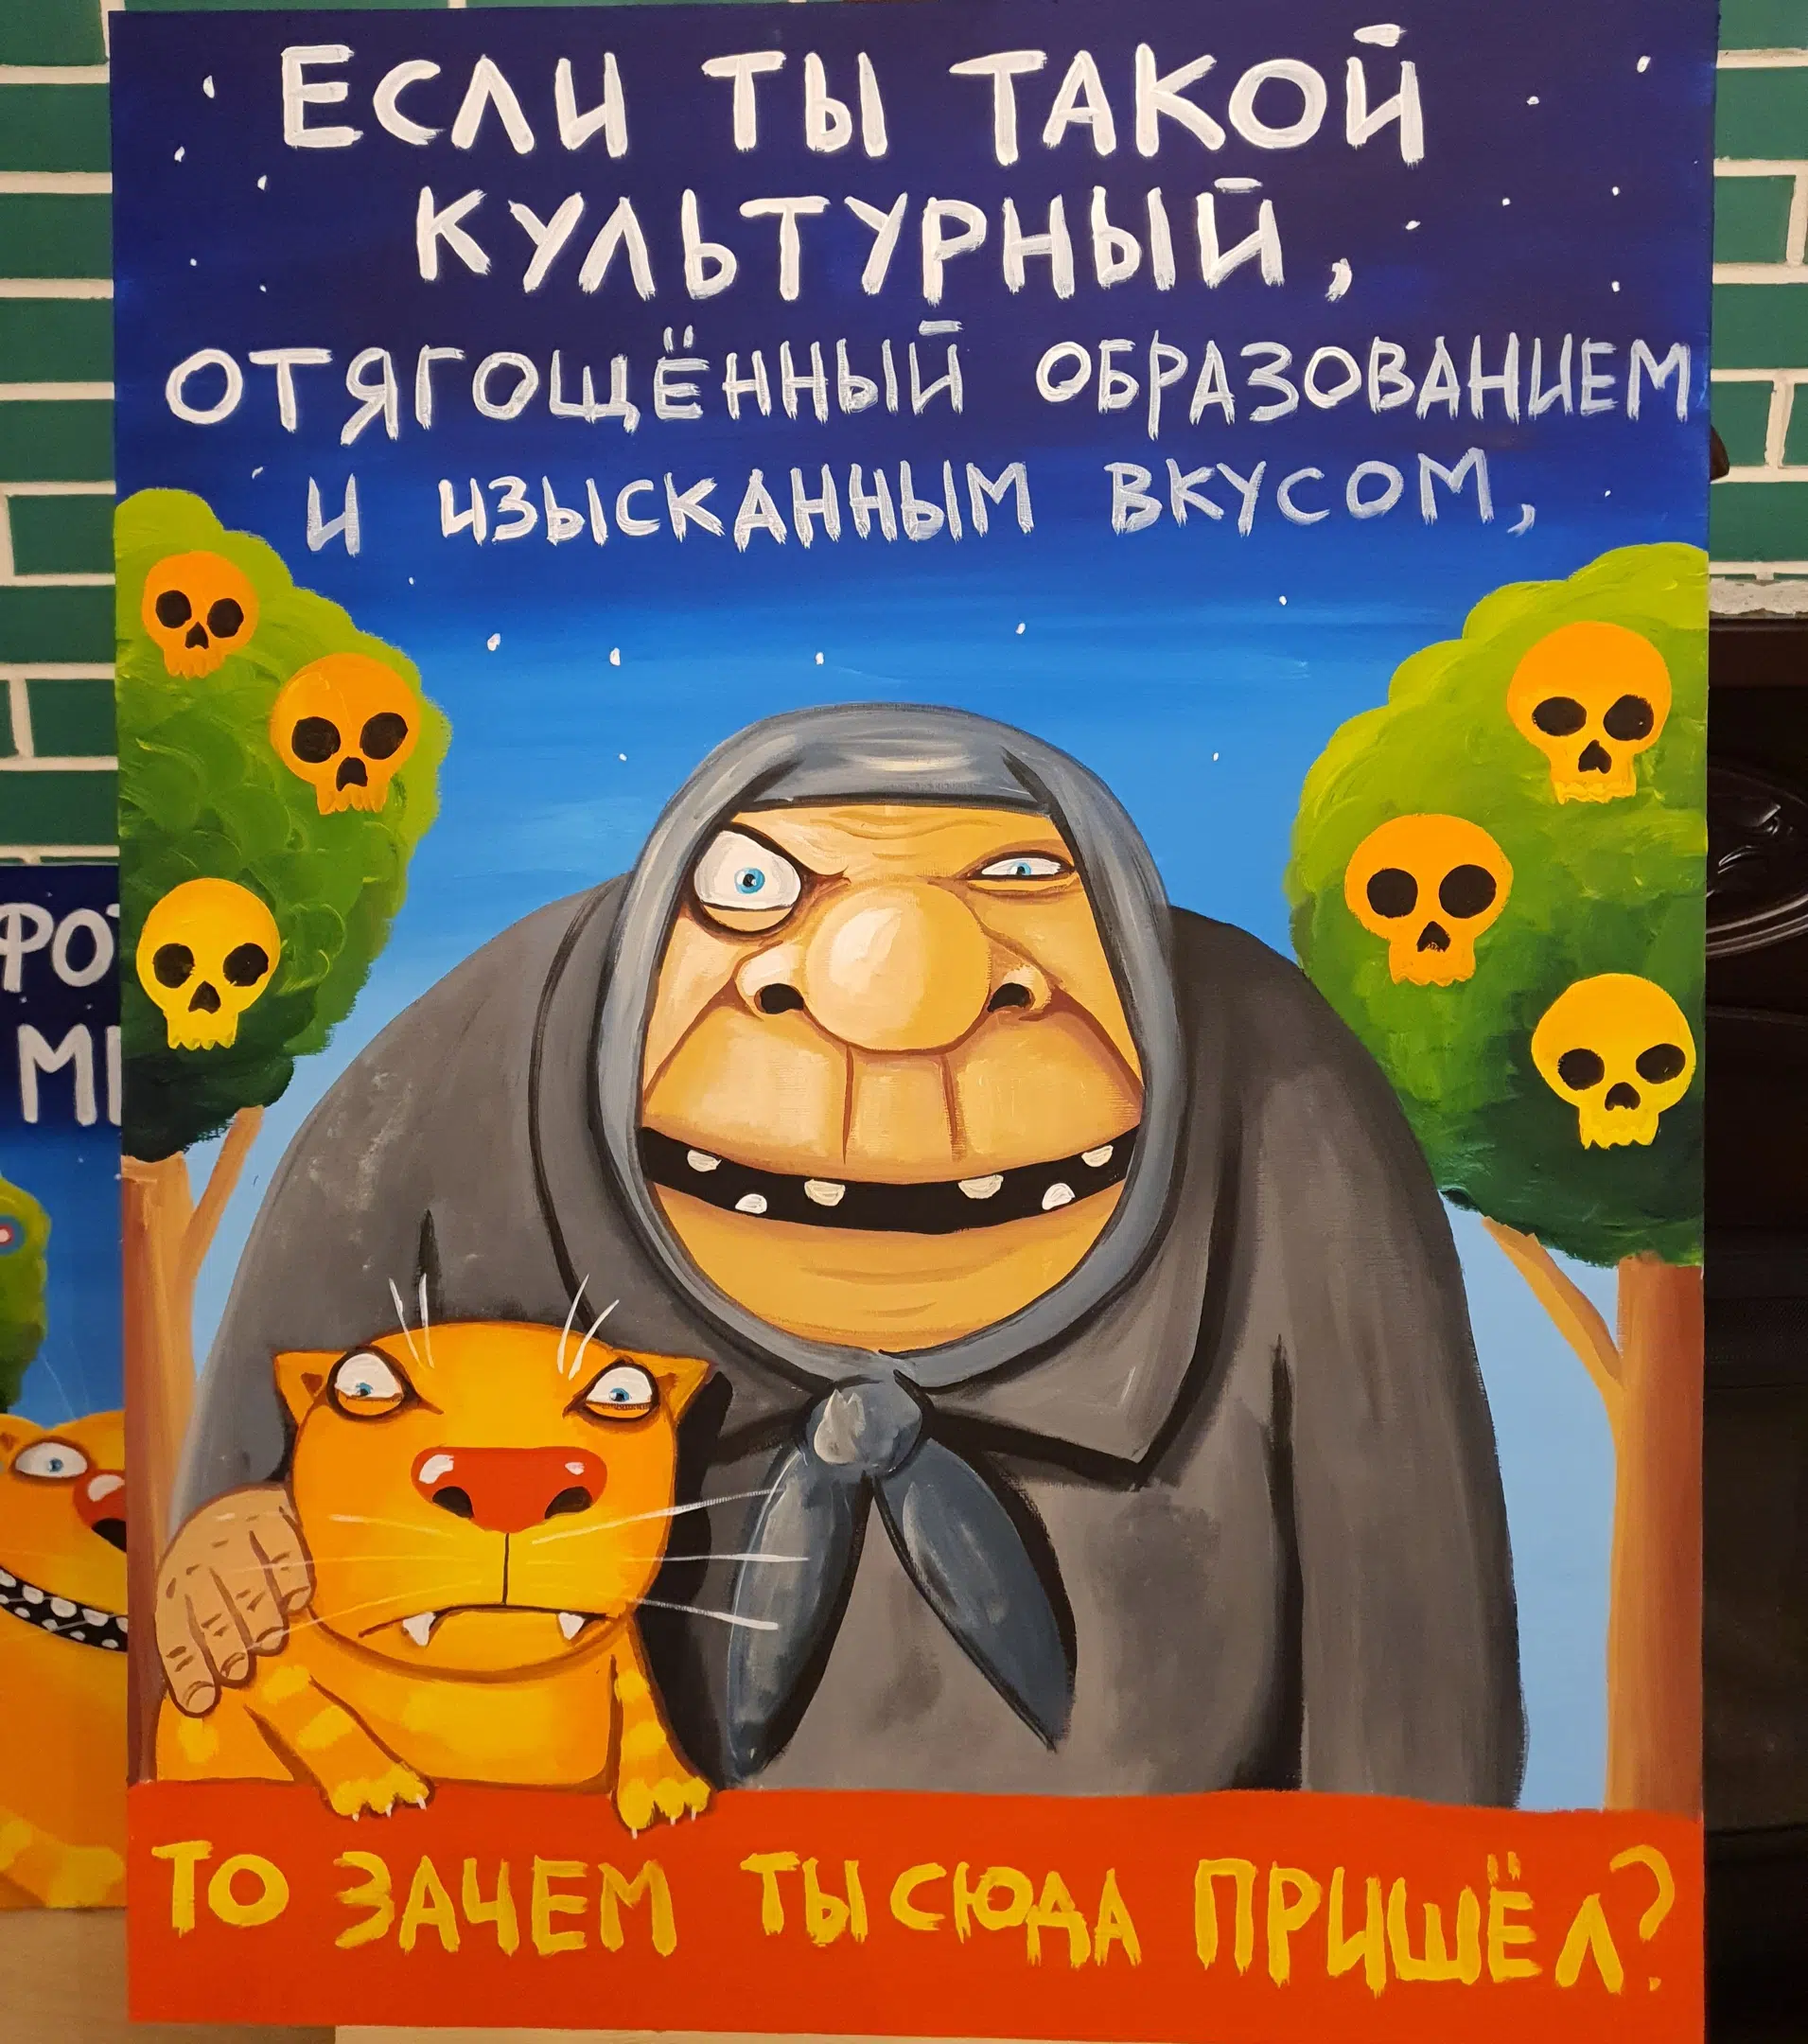 ЕСЛИ ТЫ ТАКОЙ
КУЛЬТУРНЫЙ,
ОТЯГОЩЁННЫЙ ОБРАЗОВАНИЕМ
И ИЗЫСКАННЫМ ВКУСОМ,
ТО ЗАЧЕМ ТЫ СЮДА ПРИШЁЛ?